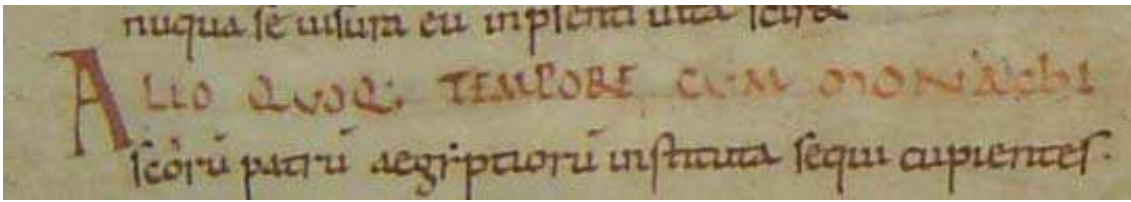 nuqua se uisura eu inpsenti uita sciret
ALIO QUOQ; TEMPORE CUM MONACHI
scorū patrū aegyptiorū instituta sequi cupientes.